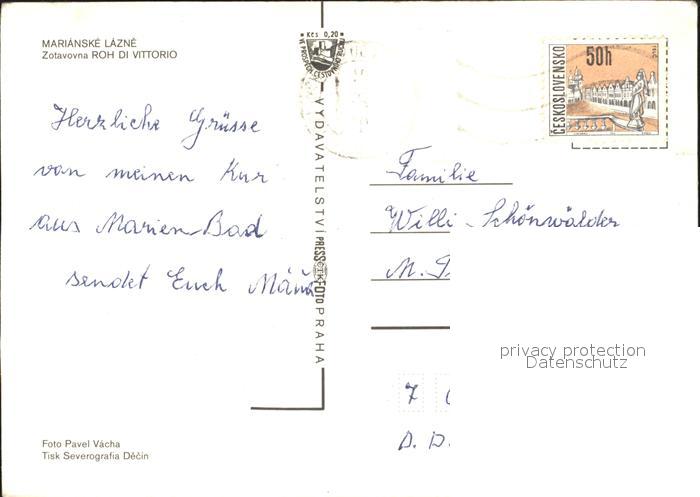 MARIÁNSKÉ LÁZNĚ
Zotavovna ROH DI VITTORIO
Herzliche Grüsse
van meinen Kur
aus Marien-Bad
sendet Euch Máňa
Foto Pavel Vácha
Tisk Severografia Děčín
Kčs 0,20
VE PROSPĚCH CESTOVNÍHO RUCHU
VYDAVATELSTVÍ PRESSFOTO PRAHA
ČESKOSLOVENSKO
50h
Familie
Willi Schönwälder
M.
7
D. D.
privacy protection
Datenschutz